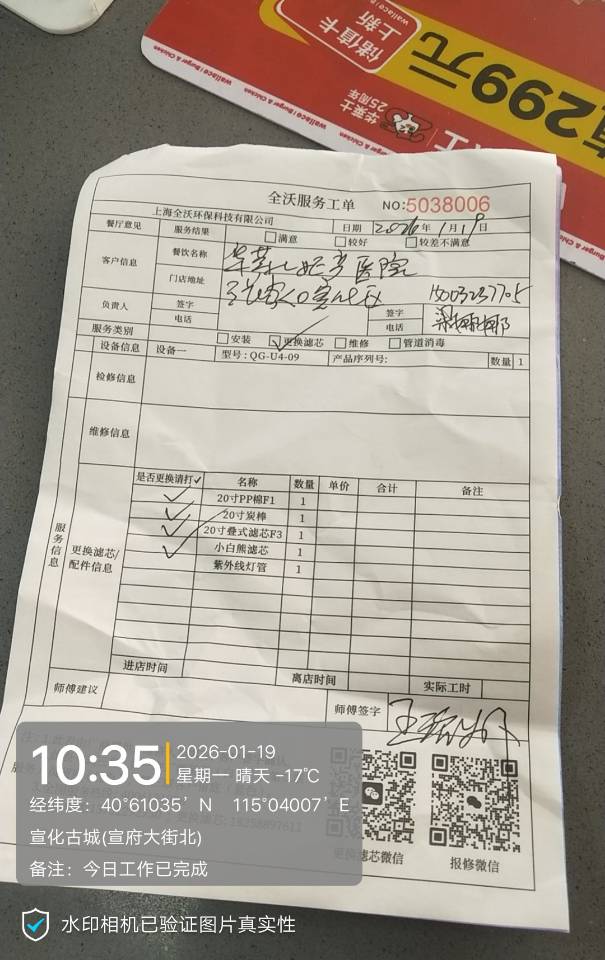 储值卡
上新
wallace
有299元
华莱士
25周年
Wallace | Burger & Chicken
全沃服务工单 NO:5038006
上海全沃环保科技有限公司 日期 2026年1月19日
餐厅意见 服务结果 满意 较好 较差不满意
客户信息 餐饮名称 医院
门店地址
负责人 签字 签字
电话 电话
服务类别 安装 更换滤芯 维修 管道消毒
设备信息 设备一 型号:QG-U4-09 产品序列号: 数量 1
检修信息
维修信息
服务信息
更换滤芯/配件信息
是否更换请打✓ 名称 数量 单价 合计 备注
✓ 20寸PP棉F1 1
✓ 20寸炭棒 1
✓ 20寸叠式滤芯F3 1
✓ 小白熊滤芯 1
紫外线灯管 1
进店时间 离店时间 实际工时
师傅建议 师傅签字
更换滤芯微信 报修微信
10:35 2026-01-19
星期一 晴天 -17℃
经纬度: 40°61035′N 115°04007′E
宣化古城(宣府大街北)
备注: 今日工作已完成
水印相机已验证图片真实性